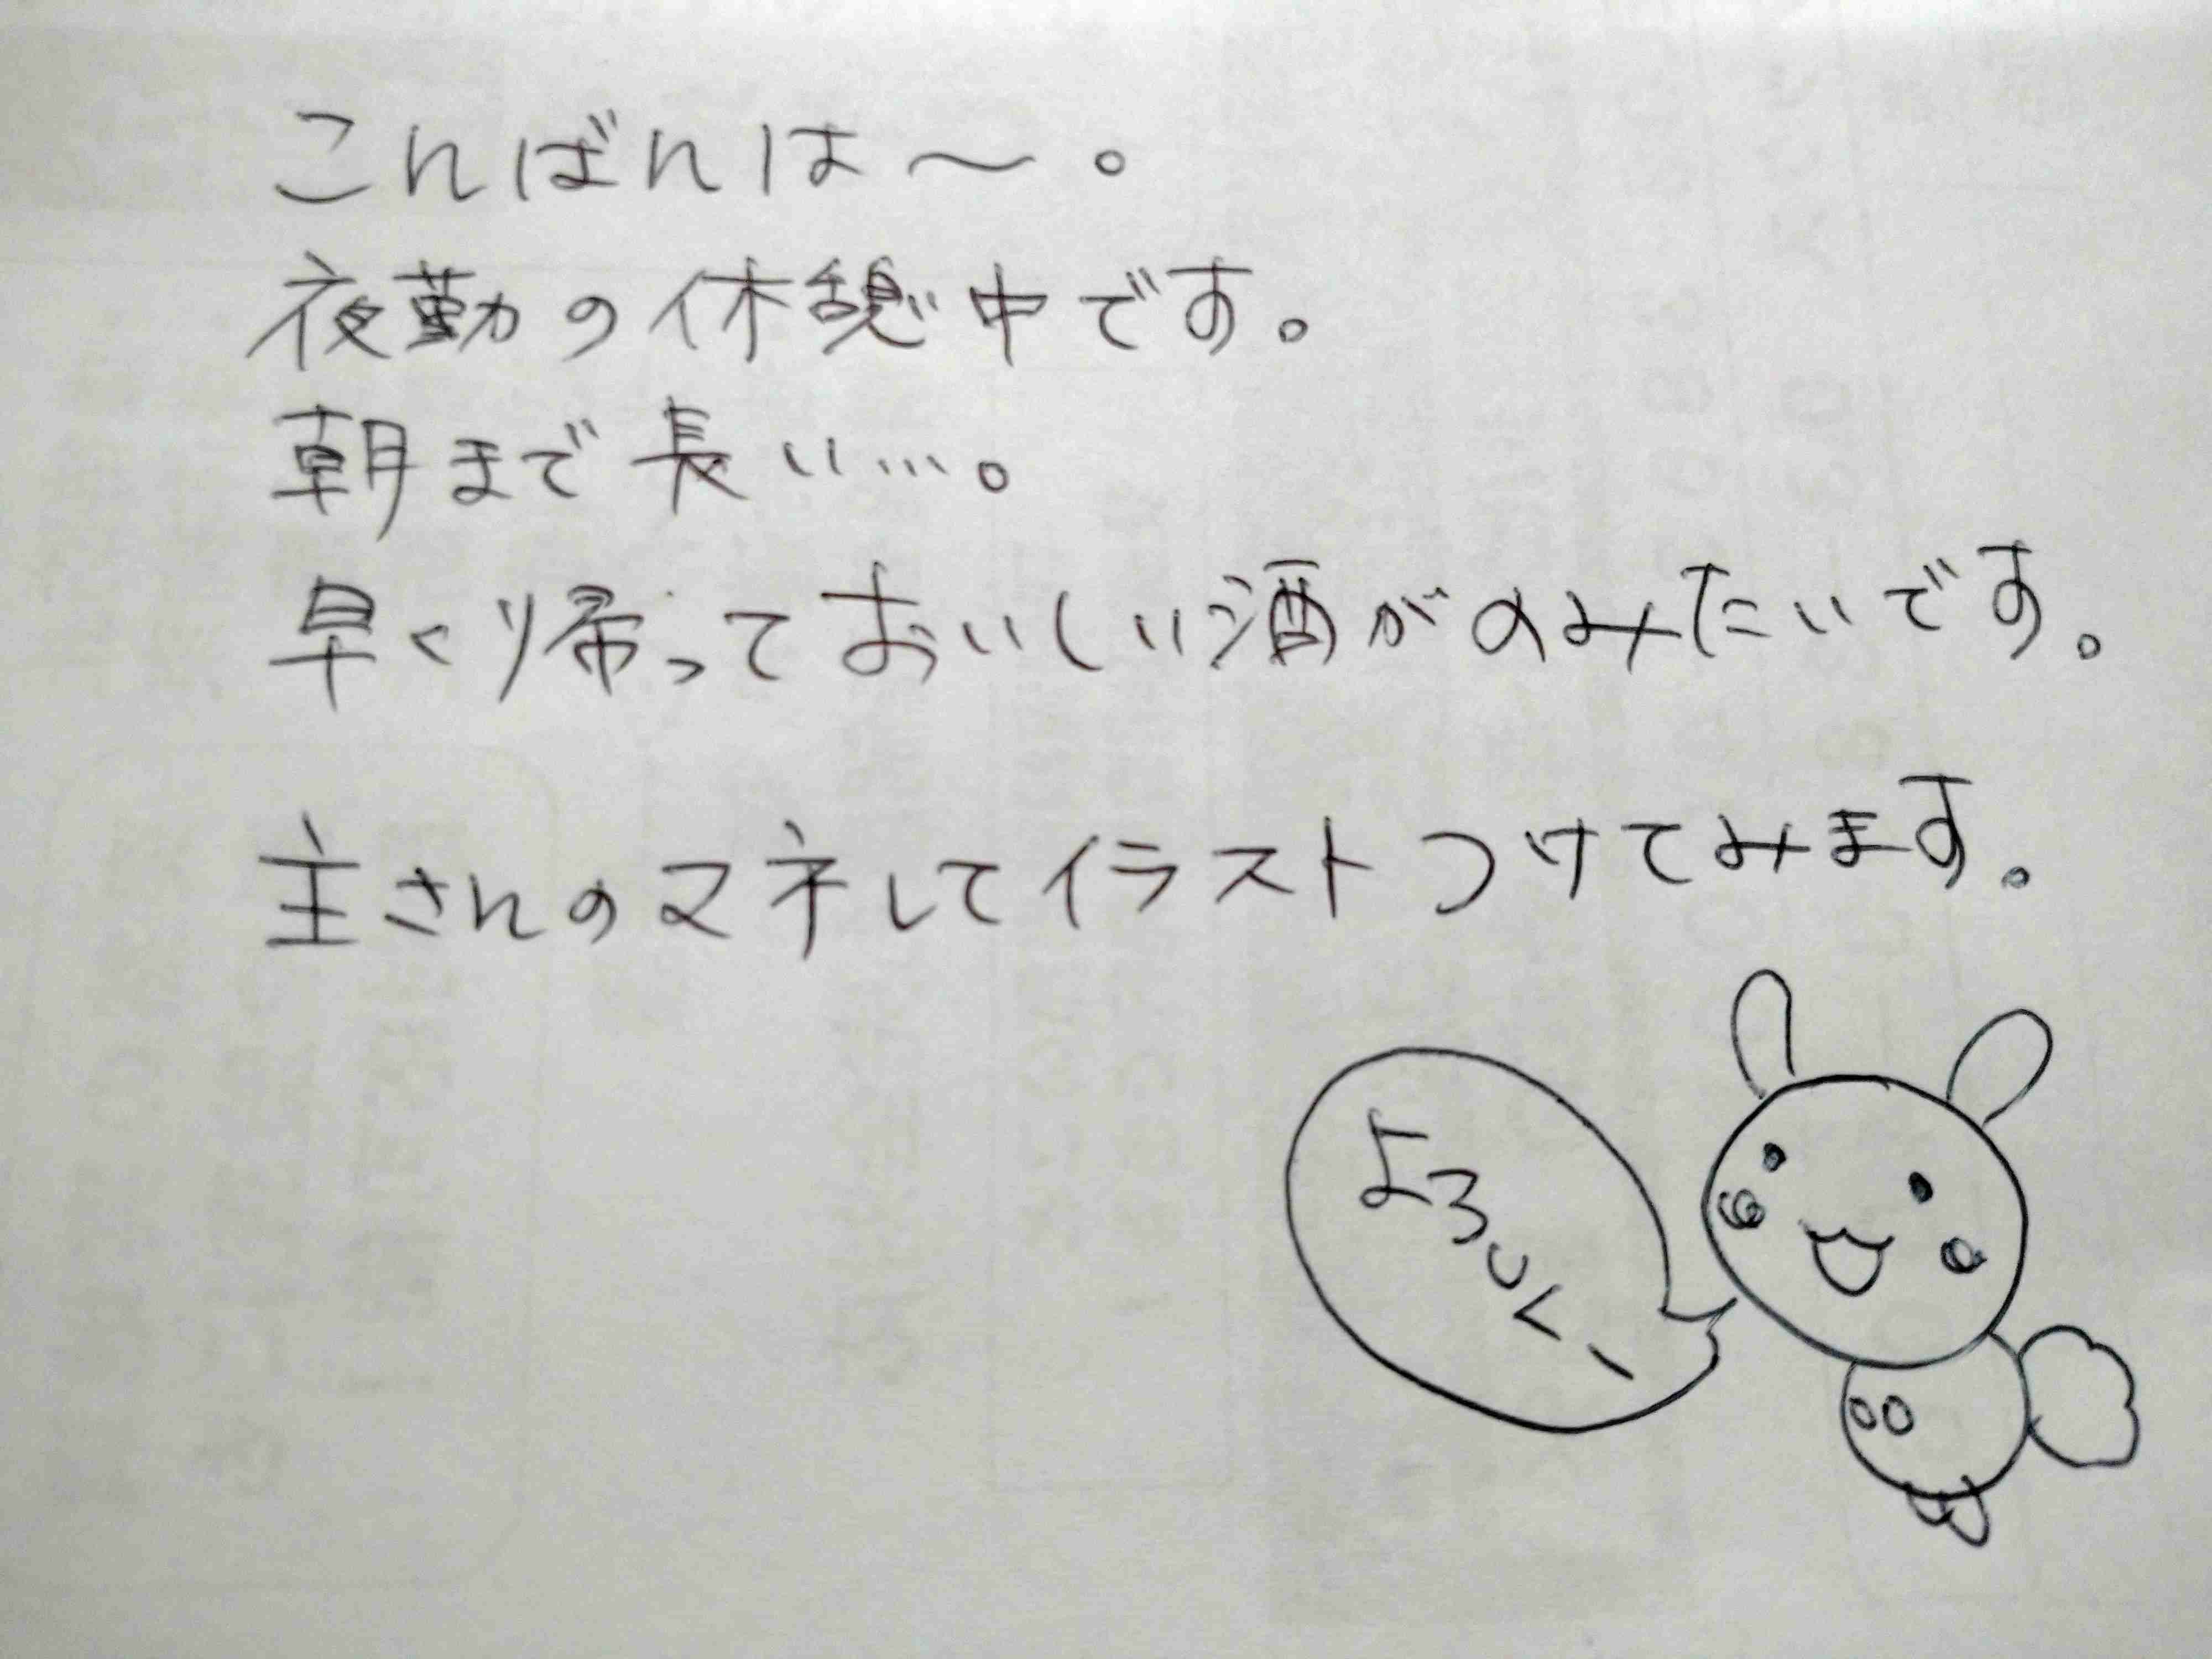 こんばんは〜。
夜勤の休憩中です。
朝まで長い…。
早く帰っておいしい酒がのみたいです。
主さんのマネしてイラストつけてみます。
よろしくー